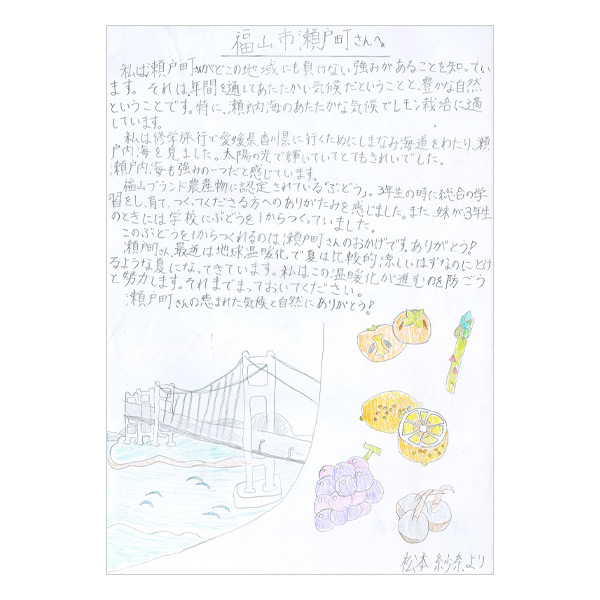 福山市瀬戸町さんへ
私は瀬戸町さんがどこの地域にも負けない強みがあることを知ってい
ます。それは年間を通してあたたかい気候だということと、豊かな自然
ということです。特に、瀬戸内海のあたたかな気候でレモン栽培に適
しています。
私は修学旅行で愛媛県香川県に行くためにしまなみ海道をわたり、瀬
戸内海を見ました。太陽の光で輝いていてとてもきれいでした。
瀬戸内海も強みの一つだと感じています。
福山ブランド農産物に認定されている「ぶどう」。3年生の時に総合の学
習をし、育て、つくってくださる方へのありがたみを感じました。また、妹が3年生
のときには学校にぶどうを1からつくっていました。
このぶどうを1からつくれるのは瀬戸町さんのおかげです。ありがとう!
瀬戸町さん、最近は地球温暖化で夏は比較的涼しいはずなのにとけ
るような夏になってきています。私はこの温暖化が進むのを防ごう
と努力します。それまでまっておいてください。
瀬戸町さんの恵まれた気候と自然にありがとう!
松本 紗奈より